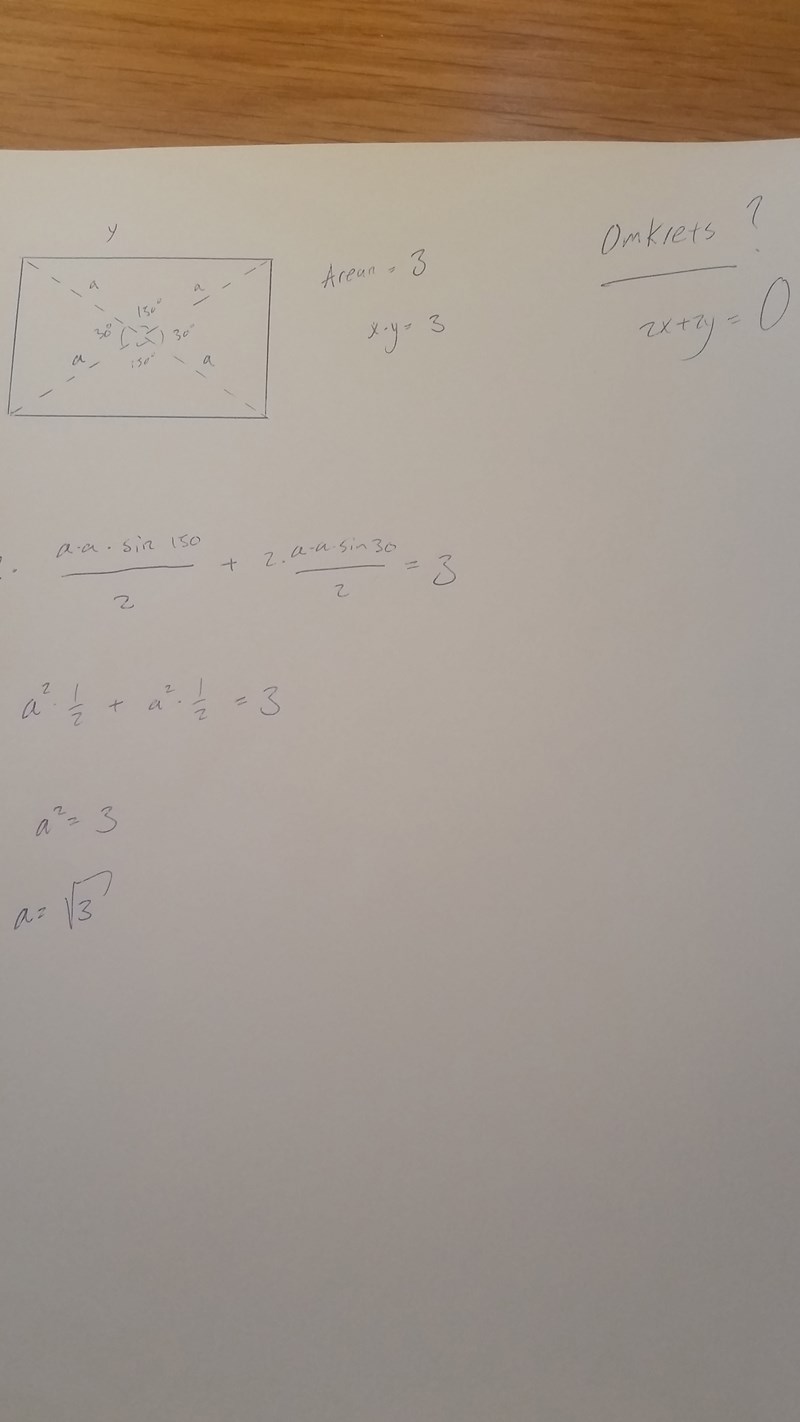 y
a a
150°
30° 30°
a 150° a
Arean = 3
x·y = 3
Omkrets ?
2x+2y = O
2. a·a·sin 150 / 2 + 2. a·a·sin 30 / 2 = 3
a² · 1/2 + a² · 1/2 = 3
a² = 3
a = √3